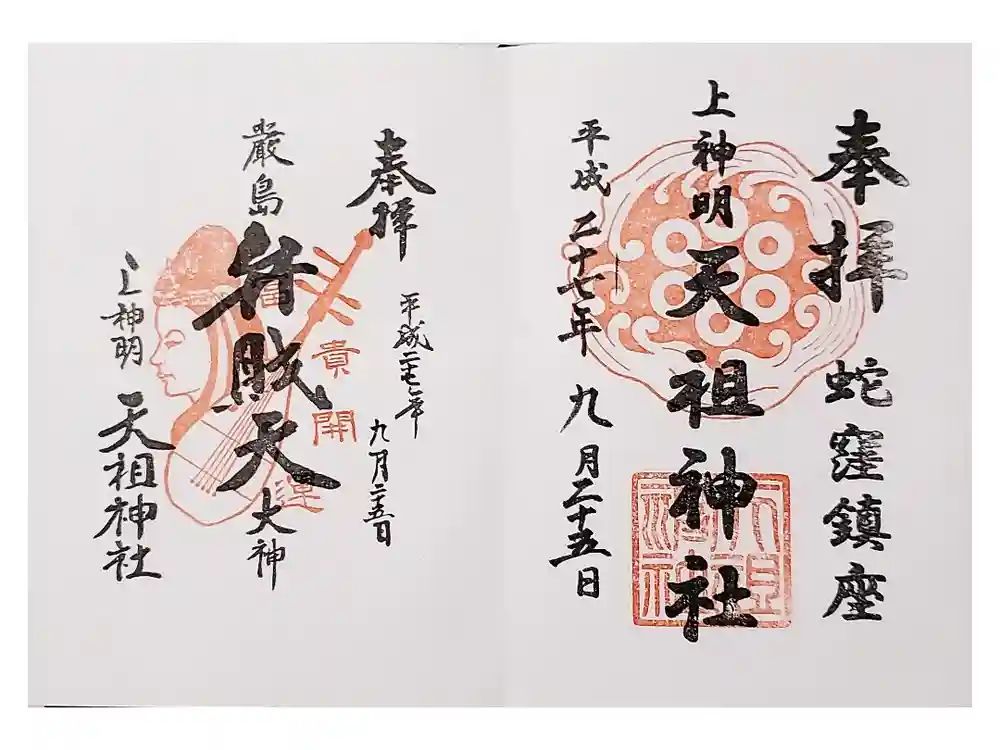 奉拝 蛇窪鎮座
上神明 天祖神社
平成二十七年九月二十五日
天祖神社
奉拝
平成二十七年九月二十五日
厳島 弁財天 大神
富貴開運
上神明 天祖神社